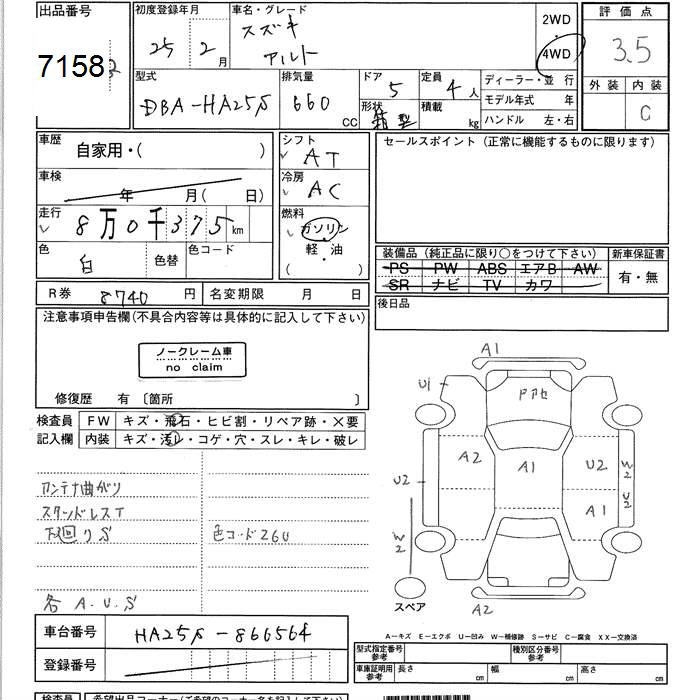 出品番号
7158
初度登録年月
25年 2月
車名・グレード
スズキ
アルト
2WD
4WD
評価点
3.5
外装 内装
C
型式
DBA-HA25S
排気量
660 CC
ドア
5
形状
箱型
定員
4人
積載
kg
ディーラー・並行
モデル年式 年
ハンドル 左・右
車歴
自家用・( )
車検
年 月( 日)
走行
8万0千375km
色
白
色替
色コード
シフト
AT
冷房
AC
燃料
ガソリン
軽・油
( )
セールスポイント(正常に機能するものに限ります)
装備品(純正品に限り○をつけて下さい)
PS PW ABS エアB AW
SR ナビ TV カワ
新車保証書
有・無
R券 8740円
名変期限 月 日
後日品
注意事項申告欄(不具合内容等は具体的に記入して下さい)
ノークレーム車
no claim
修復歴 有 〔箇所 〕
検査員
記入欄
FW キズ・飛石・ヒビ割・リペア跡・×要
内装 キズ・汚レ・コゲ・穴・スレ・キレ・破レ
アンテナ曲がり
スタンドレスT
下回りS
色コード26U
各A.U.S
A1
U1
ドアセ
A2
A1
U2
W2
U2
U2
A1
W2
スペア
A2
A-キズ E-エクボ U-凹み W-補修跡 S-サビ C-腐食 XX-交換済
車台番号
HA25S-866564
登録番号
型式指定番号
参考
種別区分番号
参考
車庫証明用
参考
長さ cm
幅 cm
高さ cm
検査員
希望出品コーナー(ご希望のコーナー名を記入して下さい)